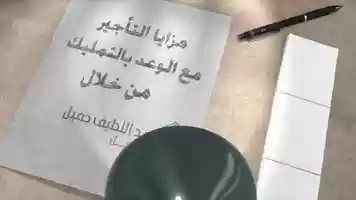 مزايا التأجير
مع الوعد بالتمليك
من خلال
اللطيف جميل